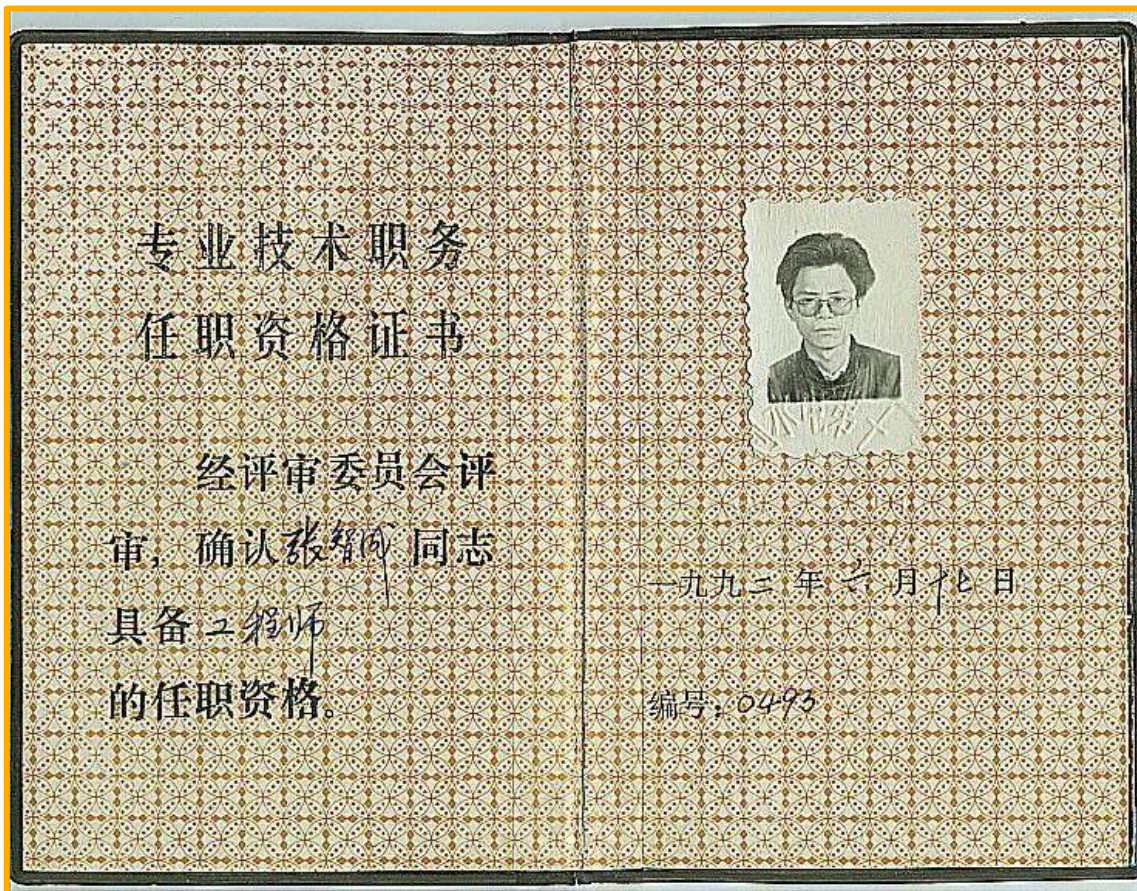 专业技术职务
任职资格证书
经评审委员会评
审，确认张智成同志
具备工程师
的任职资格。
一九九三年六月十七日
编号：0493